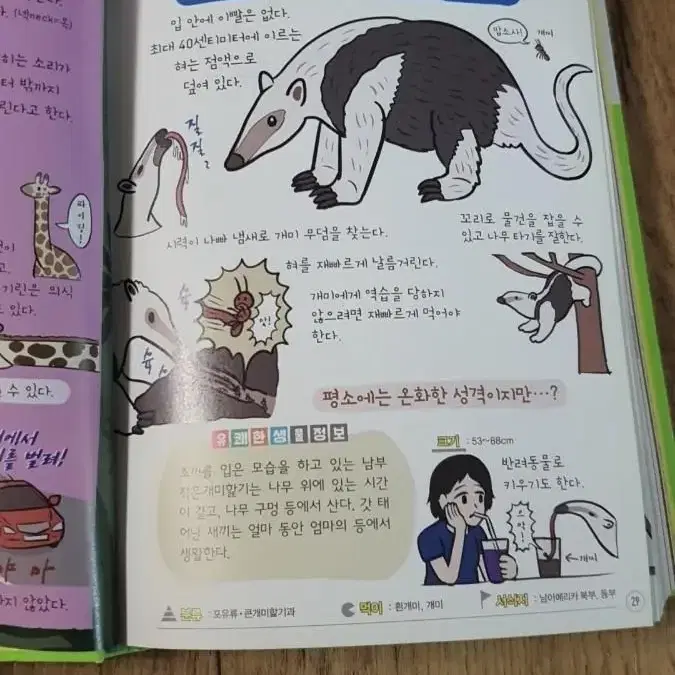 (넥neck=목)
히는 소리가
터 밖까지
린다고 한다.
파이팅!
기린은 의식
도 있다.
수 있다.
에서
를 벌려!
하지 않았다.
입 안에 이빨은 없다.
최대 40센티미터에 이르는
혀는 점액으로
덮여 있다.
맙소사!
개미
질
질
시력이 나빠 냄새로 개미 무덤을 찾는다.
꼬리로 물건을 잡을 수
있고 나무 타기를 잘한다.
혀를 재빠르게 날름거린다.
개미에게 역습을 당하지
않으려면 재빠르게 먹어야
한다.
슉
슉
앙!
평소에는 온화한 성격이지만…?
유쾌한생물정보
입은 모습을 하고 있는 남부
작은개미핥기는 나무 위에 있는 시간
이 길고, 나무 구멍 등에서 산다. 갓 태
어난 새끼는 얼마 동안 엄마의 등에서
생활한다.
크기 : 53~88cm
반려동물로
키우기도 한다.
으악!
←개미
분류 : 포유류・큰개미핥기과
먹이 : 흰개미, 개미
서식지 : 남아메리카 북부, 동부
29